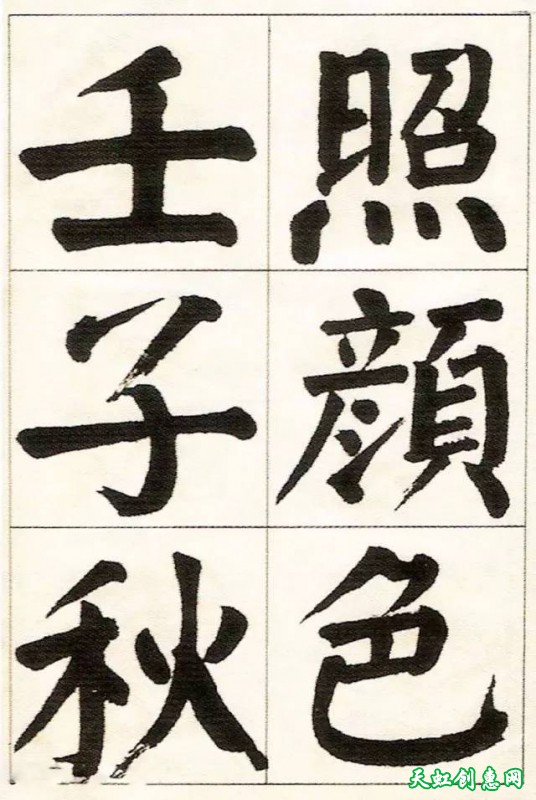 照顔色
壬子秋
天虹创惠网